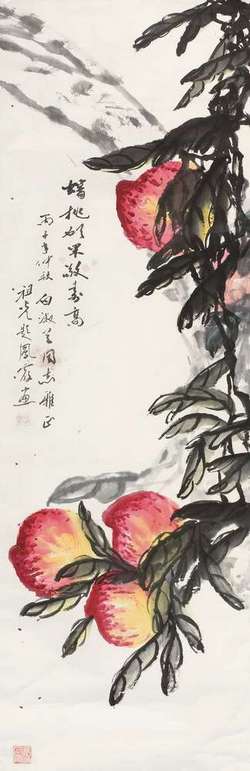 蟠桃如果敬寿高
丙子年仲秋白淑兰同志雅正
祖光题凤霞画